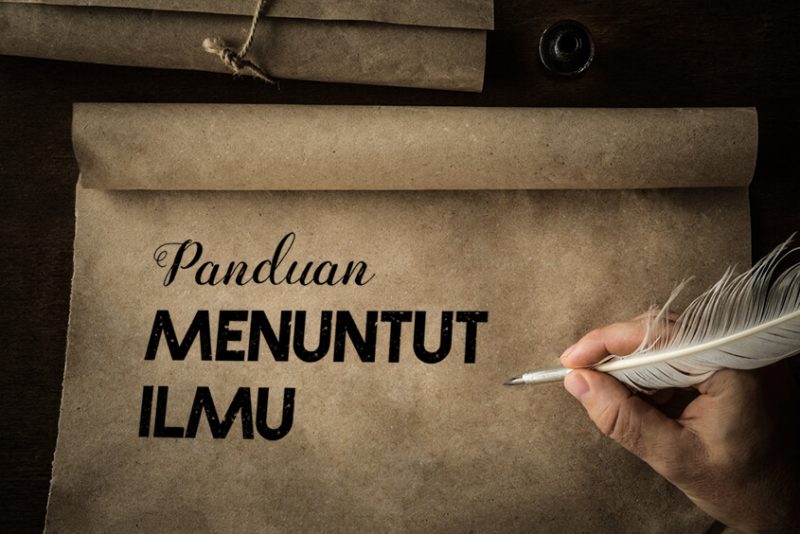 Panduan
MENUNTUT
ILMU